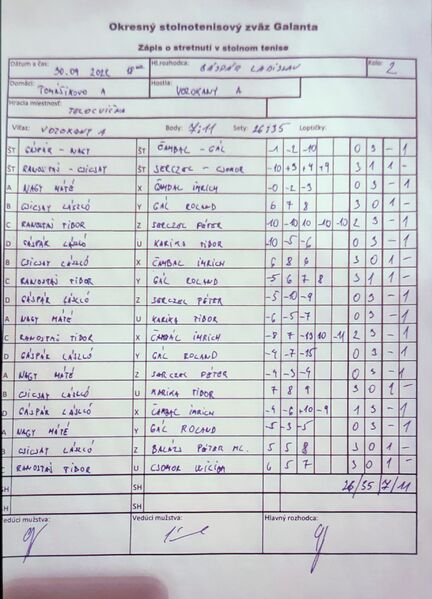 Okresný stolnotenisový zväz Galanta
Zápis o stretnutí v stolnom tenise
Dátum a čas: 30.09 Hl.rozhodca: GÁSPÁR LADISLAV Kolo: 2
Domáci: TOMÁŠIKOVO A Hostia: VOZOKANY A
Hracia miestnosť: TELOCVIČŇA
Víťaz: VOZOKANY A Body: 7:11 Sety: 26:35 Loptičky:
ŠT GÁSPÁR - NAGY ŠT ČAMBAL - GÁL -1 -2 -10 0 3 - 1
ŠT RANOSTAJ - CSICSAY ŠT SERCZEL - CSOMOR -10 +3 +4 +9 3 1 1 -
A NAGY MÁTÉ X ČAMBAL IMRICH -0 -2 -3 0 3 - 1
B CSICSAY LÁSZLÓ Y GÁL ROLAND 6 7 8 3 0 1 -
C RANOSTAJ TIBOR Z SERCZEL PÉTER 10 -10 10 -10 -10 2 3 - 1
D GÁSPÁR LÁSZLÓ U KARIKA TIBOR -10 -5 -6 0 3 - 1
B CSICSAY LÁSZLÓ X ČAMBAL IMRICH 6 8 6 3 0 1 -
C RANOSTAJ TIBOR Y GÁL ROLAND -5 6 7 8 3 1 1 -
D GÁSPÁR LÁSZLÓ Z SERCZEL PÉTER -5 -10 -9 0 3 - 1
A NAGY MÁTÉ U KARIKA TIBOR -6 -5 -7 0 3 - 1
C RANOSTAJ TIBOR X ČAMBAL IMRICH -8 7 -13 10 -11 2 3 - 1
D GÁSPÁR LÁSZLÓ Y GÁL ROLAND -4 -7 -15 0 3 - 1
A NAGY MÁTÉ Z SERCZEL PÉTER -4 -3 -4 0 3 - 1
B CSICSAY LÁSZLÓ U KARIKA TIBOR 7 8 9 3 0 1 -
D GÁSPÁR LÁSZLÓ X ČAMBAL IMRICH -4 -6 +10 -9 1 3 - 1
A NAGY MÁTÉ Y GÁL ROLAND -5 -3 -5 0 3 - 1
B CSICSAY LÁSZLÓ Z BALÁZS PÉTER ML. 5 5 8 3 0 1 -
C RANOSTAJ TIBOR U CSOMOR 6 5 7 3 0 1 -
SH SH 26/35/7/11
SH SH
Vedúci mužstva: Vedúci mužstva: Hlavný rozhodca: